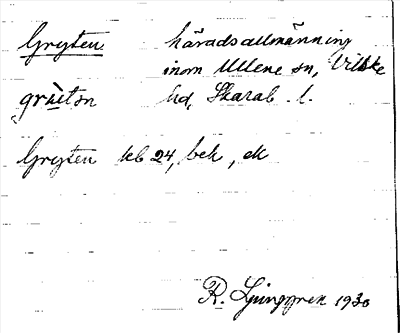 Gryten häradsallmänning
inom Ullene sn, Vilske
grùetn hd, Skarab. l.
Gryten kb 24, bek, ek
R. Ljunggren 1930